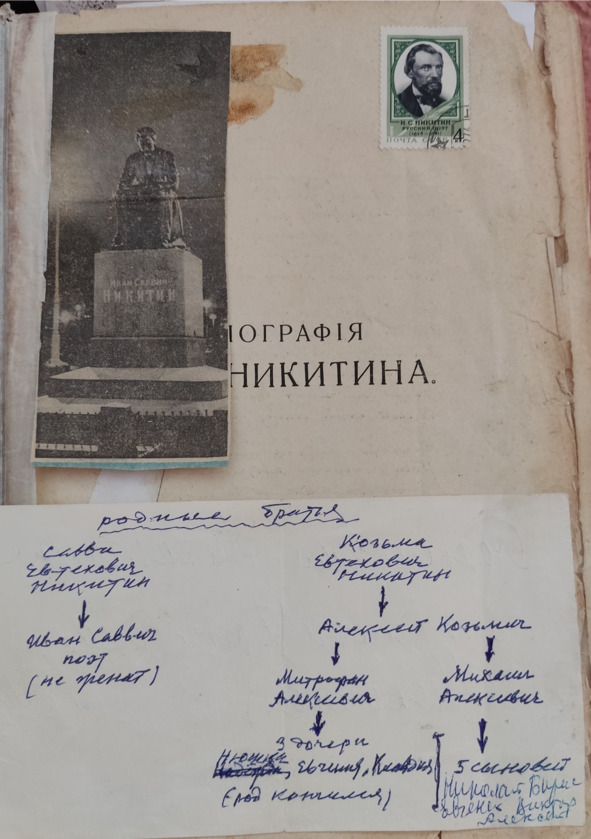 И. С. НИКИТИН
РУССКИЙ ПОЭТ
ПОЧТА
4
ИВАН САВВИЧ
НИКИТИН
ІОГРАФІЯ
НИКИТИНА.
родные братья
Савви
Евтехович
Никитин
Иван Саввич
поэт
(не женат)
Козьма
Евтехович
Никитин
Алексей Козьмич
Митрофан
Алексеевич
3 дочери
Евгения, Клавдия
(род кончился)
Михаил
Алексеевич
5 сыновей
Николай Борис
Евгений Виктор
Алексей